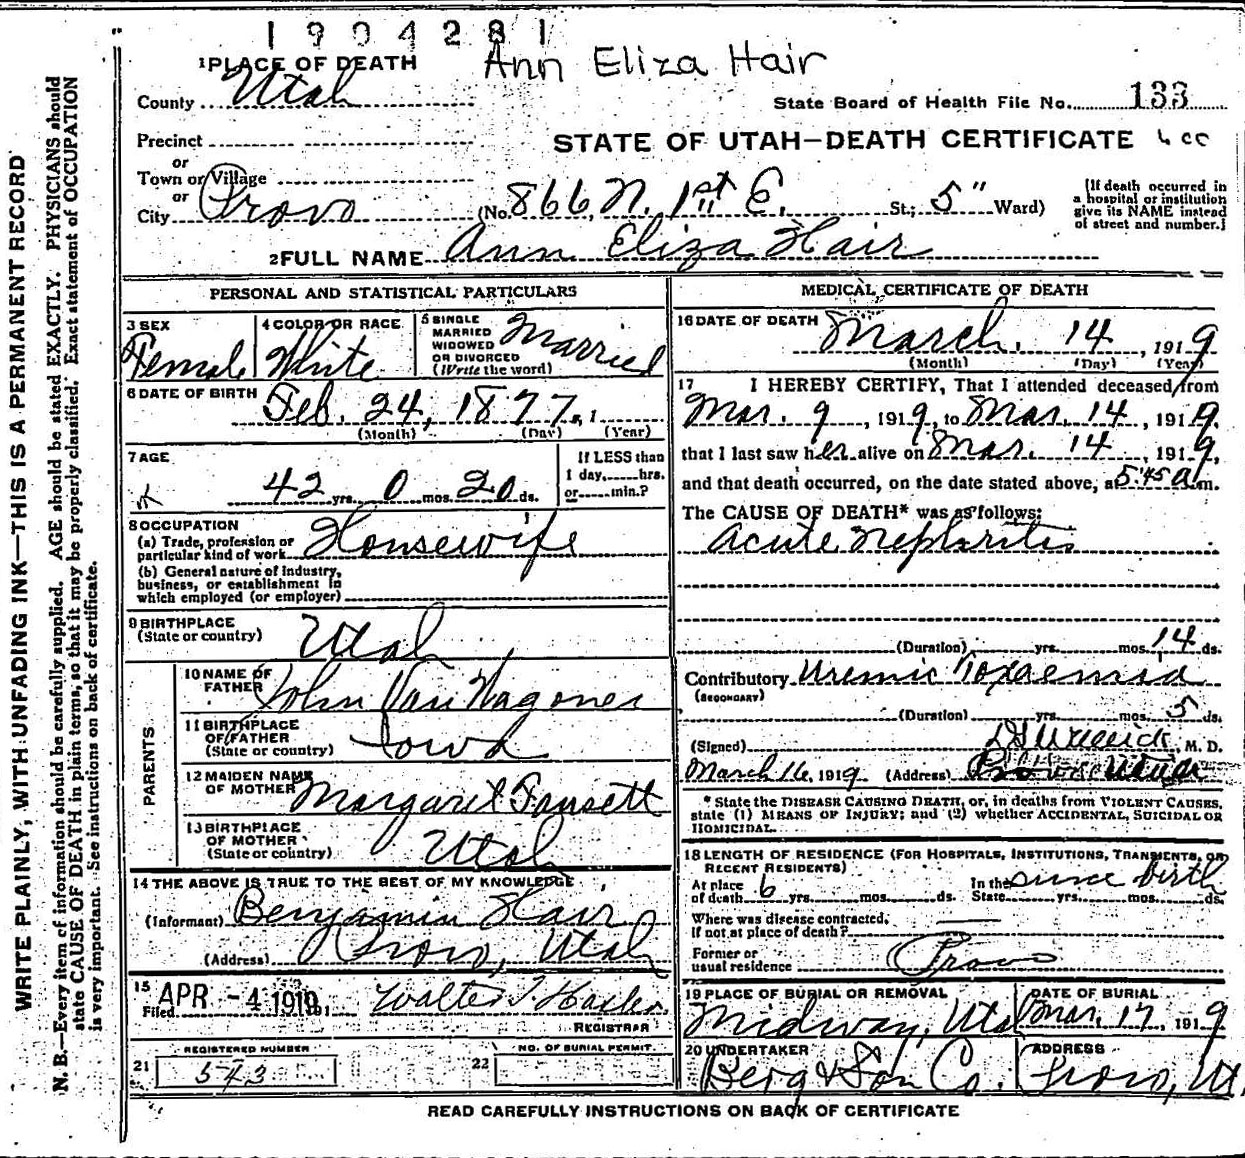 1904281
Ann Eliza Hair
1 PLACE OF DEATH
County Utah
State Board of Health File No. 133
Precinct
STATE OF UTAH—DEATH CERTIFICATE
or
Town or Village
or
City Provo (No. 866, N. 1st E. St.; 5" Ward)
[If death occurred in
a hospital or institution
give its NAME instead
of street and number.]
2 FULL NAME Ann Eliza Hair
PERSONAL AND STATISTICAL PARTICULARS
3 SEX
Female
4 COLOR OR RACE
White
5 SINGLE
MARRIED
WIDOWED
OR DIVORCED
(Write the word)
Married
6 DATE OF BIRTH
Feb. 24, 1877, 1
(Month) (Day) (Year)
7 AGE
42 yrs. 0 mos. 20 ds.
If LESS than
1 day,......hrs.
or......min.?
8 OCCUPATION
(a) Trade, profession or
particular kind of work Housewife
(b) General nature of industry,
business, or establishment in
which employed (or employer)
9 BIRTHPLACE
(State or country) Utah
PARENTS
10 NAME OF
FATHER John Van Wagoner
11 BIRTHPLACE
OF FATHER
(State or country) Iowa
12 MAIDEN NAME
OF MOTHER Margaret Fausett
13 BIRTHPLACE
OF MOTHER
(State or country) Utah
14 THE ABOVE IS TRUE TO THE BEST OF MY KNOWLEDGE
(Informant) Benjamin Hair
(Address) Provo, Utah
15
Filed APR -4 1919, 191 Walter T Hasler
REGISTRAR
REGISTERED NUMBER
21 573
NO. OF BURIAL PERMIT.
22
MEDICAL CERTIFICATE OF DEATH
16 DATE OF DEATH
March 14, 1919
(Month) (Day) (Year)
17 I HEREBY CERTIFY, That I attended deceased from
Mar. 9, 1919, to Mar. 14, 1919.
that I last saw her alive on Mar. 14, 1919,
and that death occurred, on the date stated above, at 5:45 a m.
The CAUSE OF DEATH* was as follows:
Acute Nephritis
(Duration) yrs. mos. 14 ds.
Contributory Uremic Toxaemia
(SECONDARY)
(Duration) yrs. mos. 5 ds.
(Signed) M. D.
March 16, 1919 (Address) Provo Utah
* State the DISEASE CAUSING DEATH, or, in deaths from VIOLENT CAUSES,
state (1) MEANS OF INJURY; and (2) whether ACCIDENTAL, SUICIDAL OR
HOMICIDAL.
18 LENGTH OF RESIDENCE (FOR HOSPITALS, INSTITUTIONS, TRANSIENTS, OR
RECENT RESIDENTS)
At place
of death 6 yrs. mos. ds.
In the
State since birth yrs. mos. ds.
Where was disease contracted,
If not at place of death?
Former or
usual residence Provo
19 PLACE OF BURIAL OR REMOVAL
Midway, Utah
DATE OF BURIAL
Mar. 17, 1919
20 UNDERTAKER
Berg & Son Co.
ADDRESS
Provo, Ut.
READ CAREFULLY INSTRUCTIONS ON BACK OF CERTIFICATE
WRITE PLAINLY, WITH UNFADING INK—THIS IS A PERMANENT RECORD
N. B.—Every item of information should be carefully supplied. AGE should be stated EXACTLY. PHYSICIANS should
state CAUSE OF DEATH in plain terms, so that it may be properly classified. Exact statement of OCCUPATION
is very important. See instructions on back of certificate.